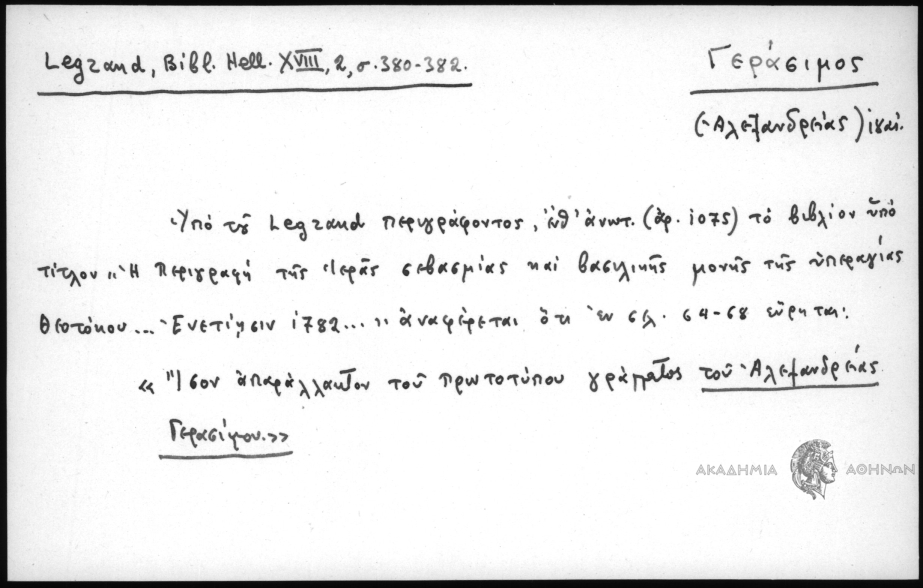 Legrand, Bibl. Hell. XVIII, 2, σ. 380-382.
Γεράσιμος
(Ἀλεξανδρείας)
Ὑπό τοῦ Legrand περιγράφοντος, ἔνθ' ἀνωτ. (ἀρ. 1075) τό βιβλίον ὑπό
τίτλον «Ἡ Περιγραφή τῆς Ἱερᾶς σεβασμίας καί βασιλικῆς μονῆς τῆς ὑπεραγίας
Θεοτόκου... Ἐνετίησιν 1782...» ἀναφέρεται ὅτι ἐν σελ. 64-68 εὕρηται:
«Ἴσον ἀπαράλλακτον τοῦ πρωτοτύπου γράμματος τοῦ Ἀλεξανδρείας
Γερασίμου.»
ΑΚΑΔΗΜΙΑ ΑΘΗΝΩΝ